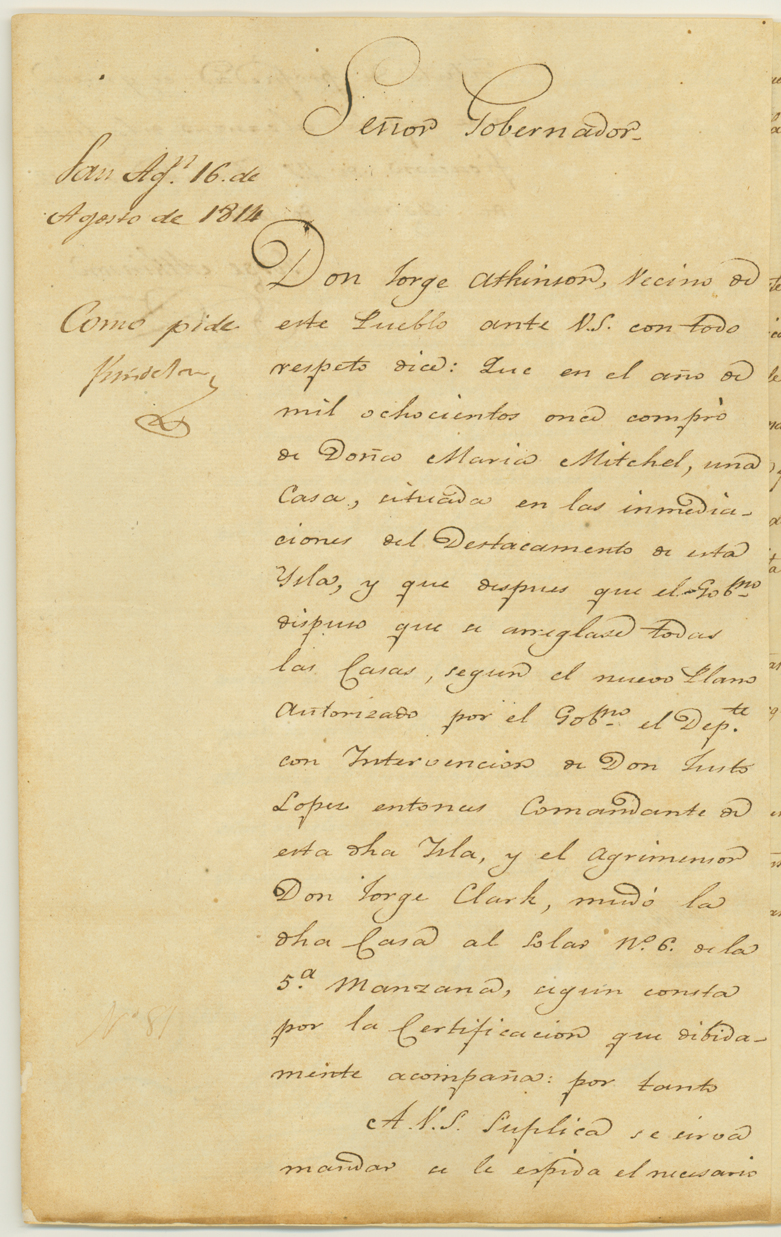 Señor Gobernador
San Agⁿ. 16. de
Agosto de 1814
Como pide
Kindelan
Don Jorge Atkinson, Vecino de
este Pueblo ante V.S. con todo
respeto dice: Que en el año de
mil ochocientos once comprò
de Doña Maria Mitchel, una
Casa, situada en las inmedia-
ciones del Destacamento de esta
Ysla, y que despues que el Gobno
dispuso que se arreglase todas
las Casas, segun el nuevo Plano
Autorizado por el Gobno el Depte
con Intervencion de Don Justo
Lopez entonces Comandante de
esta dha Ysla, y el Agrimensor
Don Jorge Clark, mudó la
dha Casa al Solar Nº 6. de la
5.ª Manzana, segun consta
por la Certificacion que dibida-
mente acompaña: por tanto
A.V.S. Suplica se sirva
mandar se le espida el necesario
Nº 81